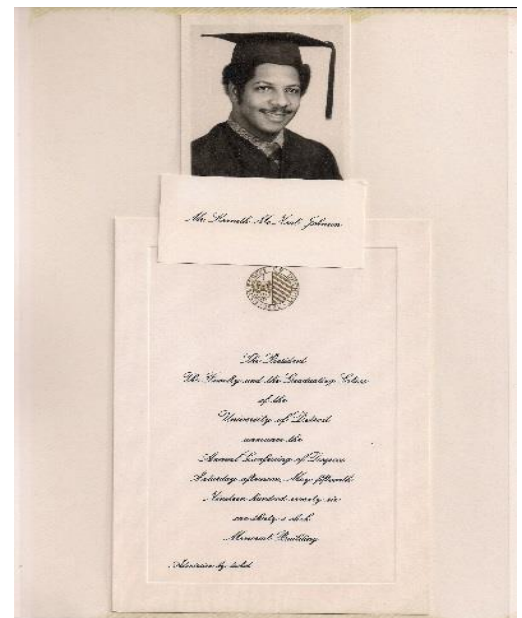 Mr. Kenneth Mc Johnson
The President
The Faculty and the Graduating Class
of the
University of Detroit
announce the
Annual Conferring of Degrees
Saturday afternoon, May fifteenth
Nineteen hundred seventy six
one thirty o'clock
Memorial Building
Admission by ticket